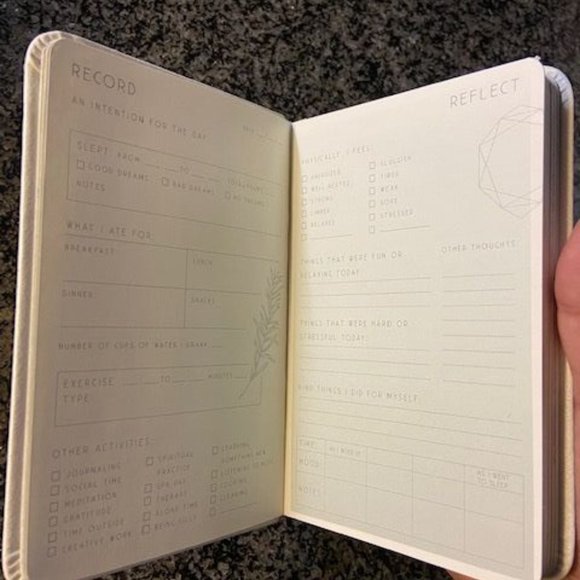 RECORD
AN INTENTION FOR THE DAY
DATE
SLEPT FROM TO
TOTAL HOURS
GOOD DREAMS BAD DREAMS NO DREAMS
NOTES
WHAT I ATE FOR:
BREAKFAST LUNCH
DINNER SNACKS
NUMBER OF CUPS OF WATER I DRANK
EXERCISE TO MINUTES
TYPE
OTHER ACTIVITIES:
JOURNALING
SOCIAL TIME
MEDITATION
GRATITUDE
TIME OUTSIDE
CREATIVE WORK
SPIRITUAL
PRACTICE
SPA DAY
THERAPY
ALONE TIME
BEING SILLY
LEARNING
SOMETHING NEW
LISTENING TO MUSIC
COOKING
CLEANING
REFLECT
PHYSICALLY, I FEEL:
ENERGIZED
WELL RESTED
STRONG
LIMBER
RELAXED
SLUGGISH
TIRED
WEAK
SORE
STRESSED
THINGS THAT WERE FUN OR
RELAXING TODAY:
OTHER THOUGHTS:
THINGS THAT WERE HARD OR
STRESSFUL TODAY:
KIND THINGS I DID FOR MYSELF:
TIME:
AS I WOKE UP
AS I WENT
TO SLEEP
MOOD
NOTES